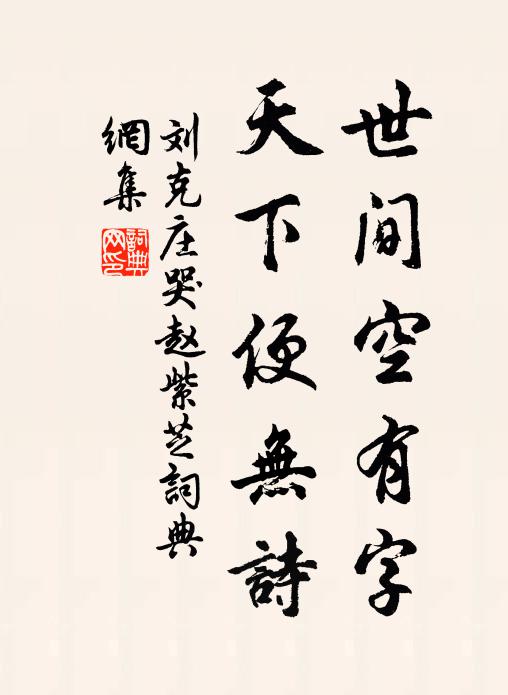 世间空有字
天下便無詩
刘克庄哭赵紫芝詞典
網集
詞典
网印